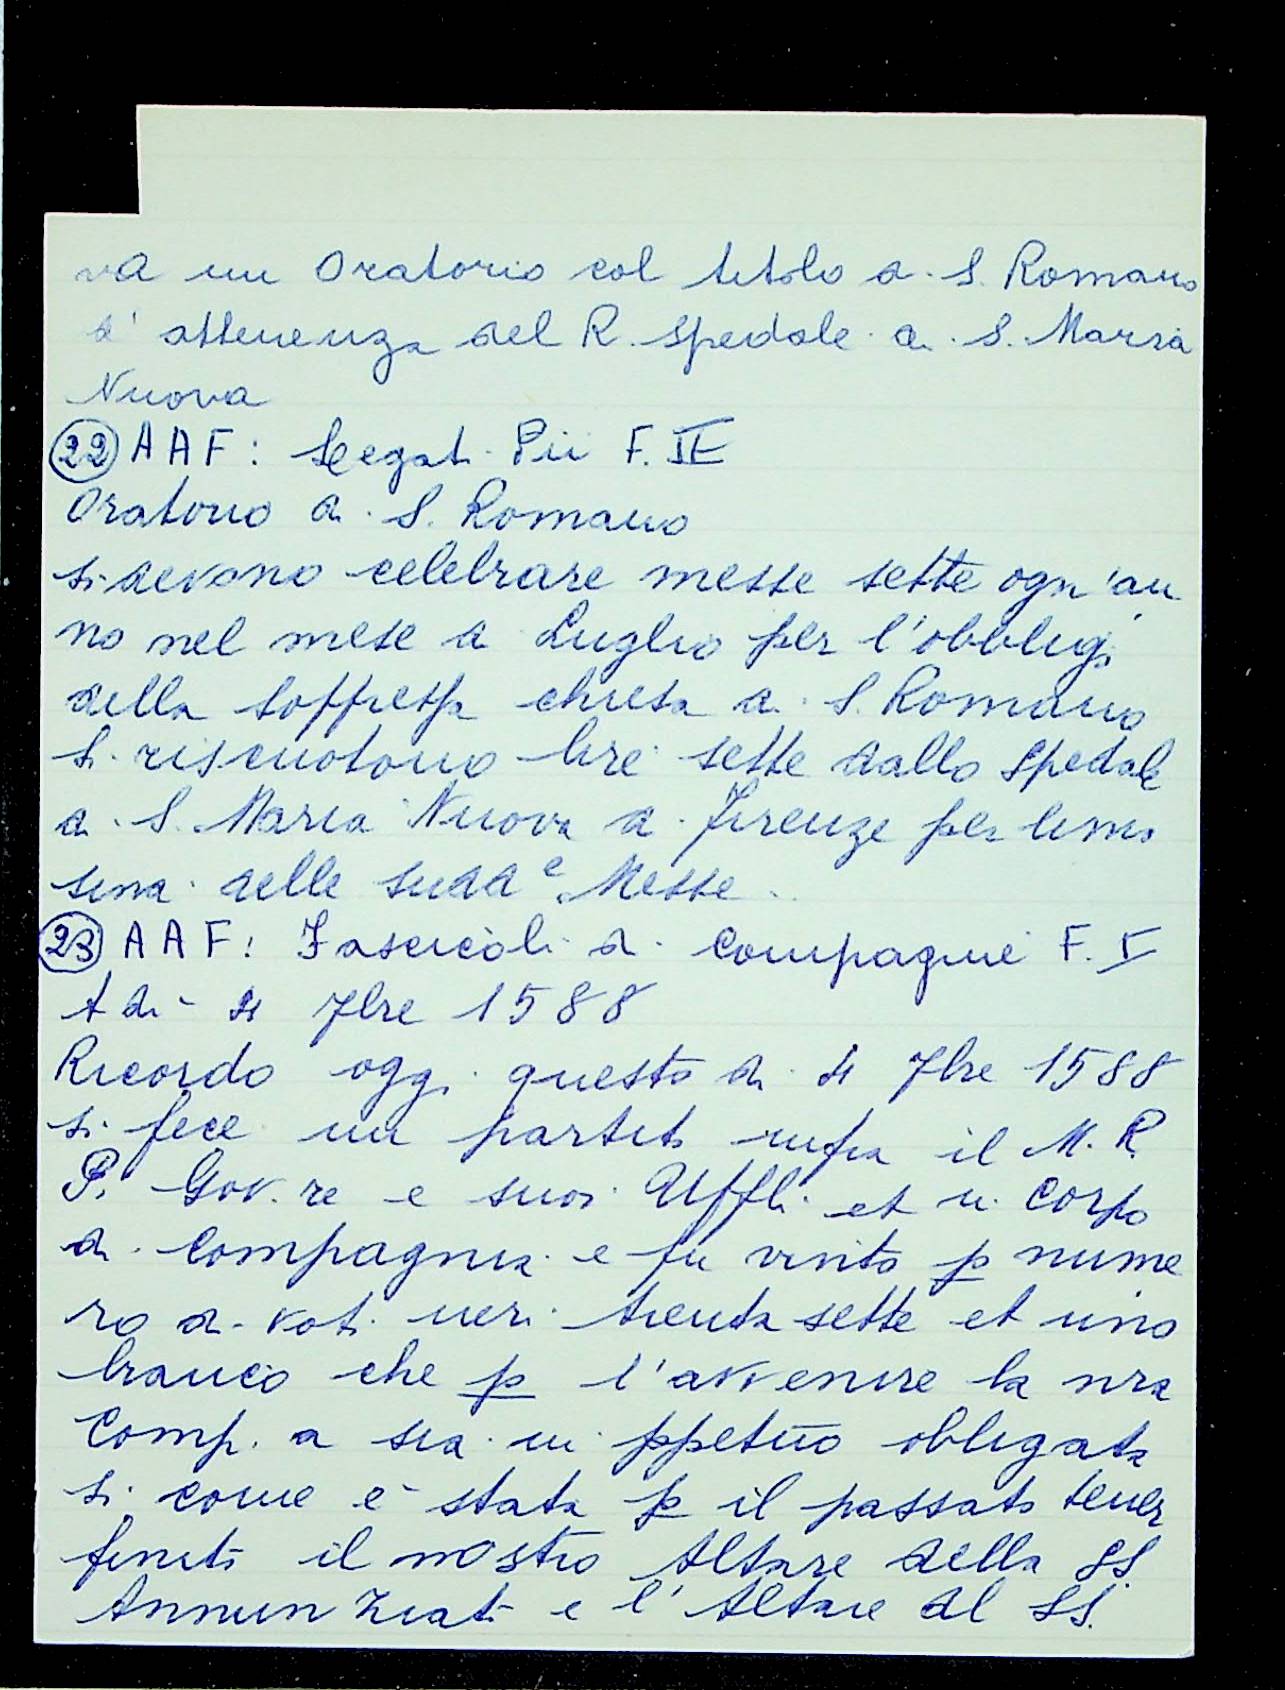 va un Oratorio col titolo di S. Romano
d'attenenza del R. Spedale di S. Maria
Nuova
(22) AAF: Legati Pii F. II
Oratorio di S. Romano
si devono celebrare messe sette ogn'an
no nel mese di Luglio per l'obblig.
della soppressa chiesa di S. Romano
si riscuotono lire sette dallo Spedale
di S. Maria Nuova di Firenze per limo
sina delle sudde Messe.
(23) AAF: Fascicoli di Compagnie F. V
A di 4 7bre 1588
Ricordo oggi questo di 4 7bre 1588
si fece un partito infra il M. R.
P. Gov.re e suoi Uffli et in corpo
di Compagnia e fu vinto p nume
ro di voti neri trenta sette et uno
bianco che p l'avvenire la nra
Comp.a sia in ppetuo obligata
si come è stata p il passato tener
finiti il nostro Altare della SS.
Annunziat e l'Altare del SS.